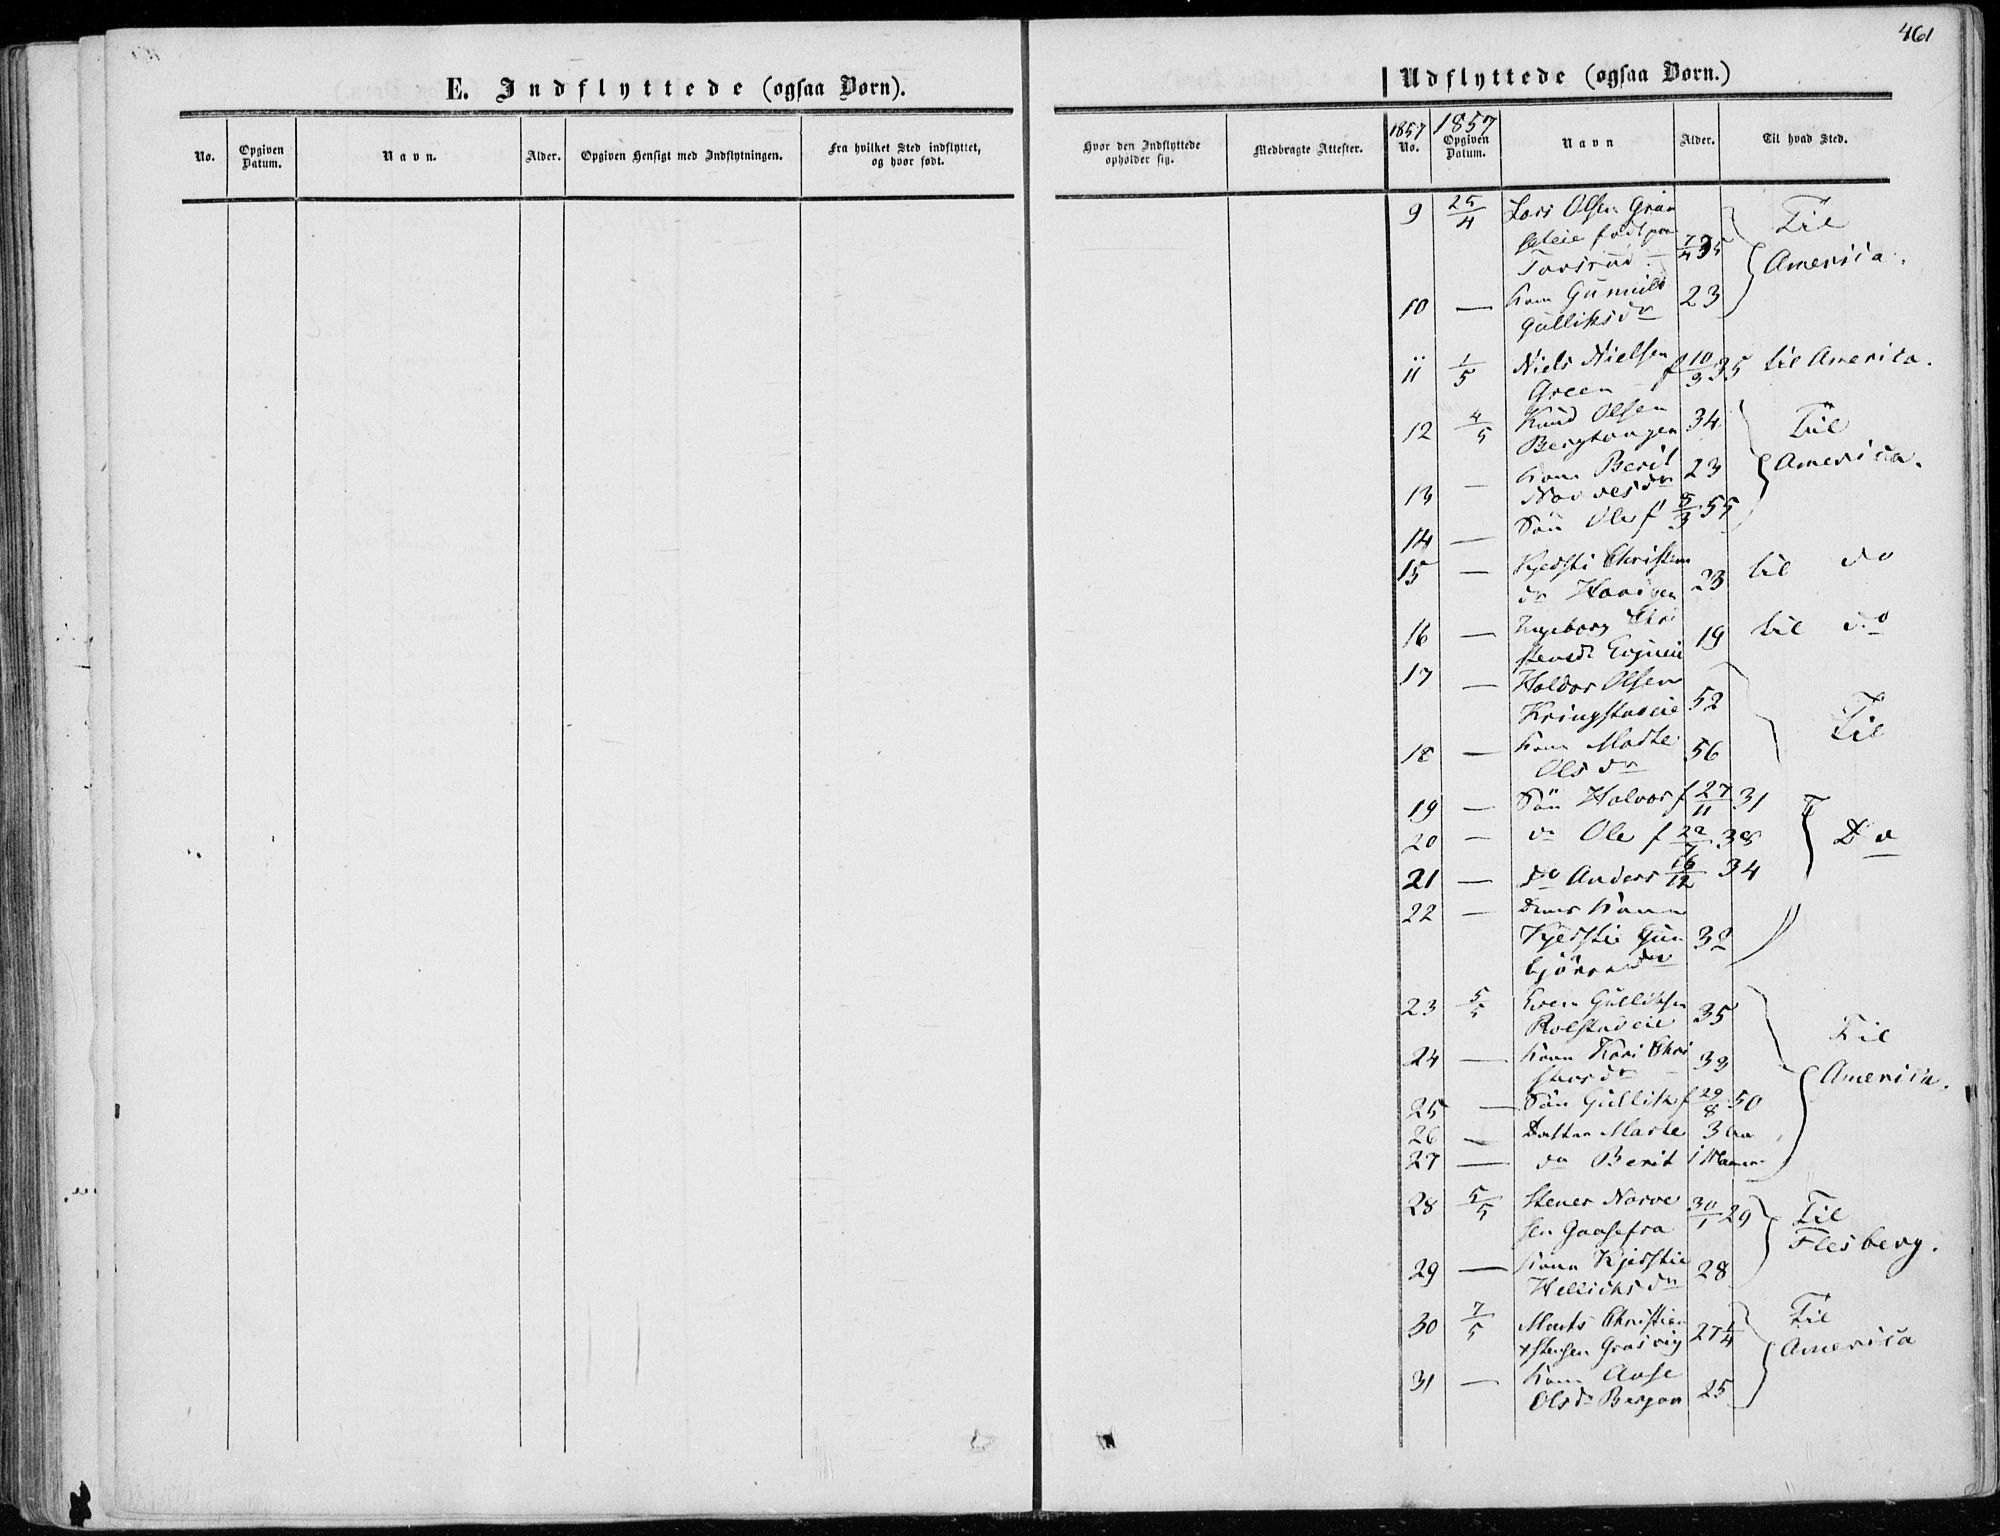 461
E. Indflyttede (ogsaa Børn).
No.
Opgiven Datum.
Navn.
Alder.
Opgiven Hensigt med Indflytningen.
Fra hvilket Sted indflyttet, og hvor født.
Udflyttede (ogsaa Børn.)
Hvor den Indflyttede opholder sig.
Medbragte Attester.
1857
No.
1857
Opgiven Datum.
Navn
Alder.
Til hvad Sted.
9 25/4 Lars Olsen
født paa
7/4 35
Til America.
10 — Kone Gunnild 23
Gulliksdr
11 1/5 Niels Nielsen f 10/3 35 til America.
Green
12 4/5 Knud Olsen 34
Til America.
13 — Kone Berit 23
14 — Søn Ole f 8/3 55
15 — Kjersti Christens
dr 23 til do
16 — Ingeborg Chri 19 til do
stensdr
17 — Haldor Olsen 52
Kringstadeie
Til Do
18 — Kone Marte 56
Olsdr
19 — Søn Halvor f 27/11 31
20 — do Ole f 22/7 38
21 — do Anders 16/12 34
22 — Kone
Kjerstie Gun
bjørnsdr
23 5/5 Even Gulliksen 35
Rolstadeie
Til America.
24 — Kone Kari Chri 33
stensdr
25 — Søn Gullik f 29/8 50
26 — Datter Marte 3
27 — do Berit
28 5/5 Stener Narve 30/1 29
sen
Til Flesberg.
29 — Kone Kjerstie 28
Hellichsdr
30 7/5 Mads Christian 27 1/4
Til America
31 — Kone Aase 25
Olsdr